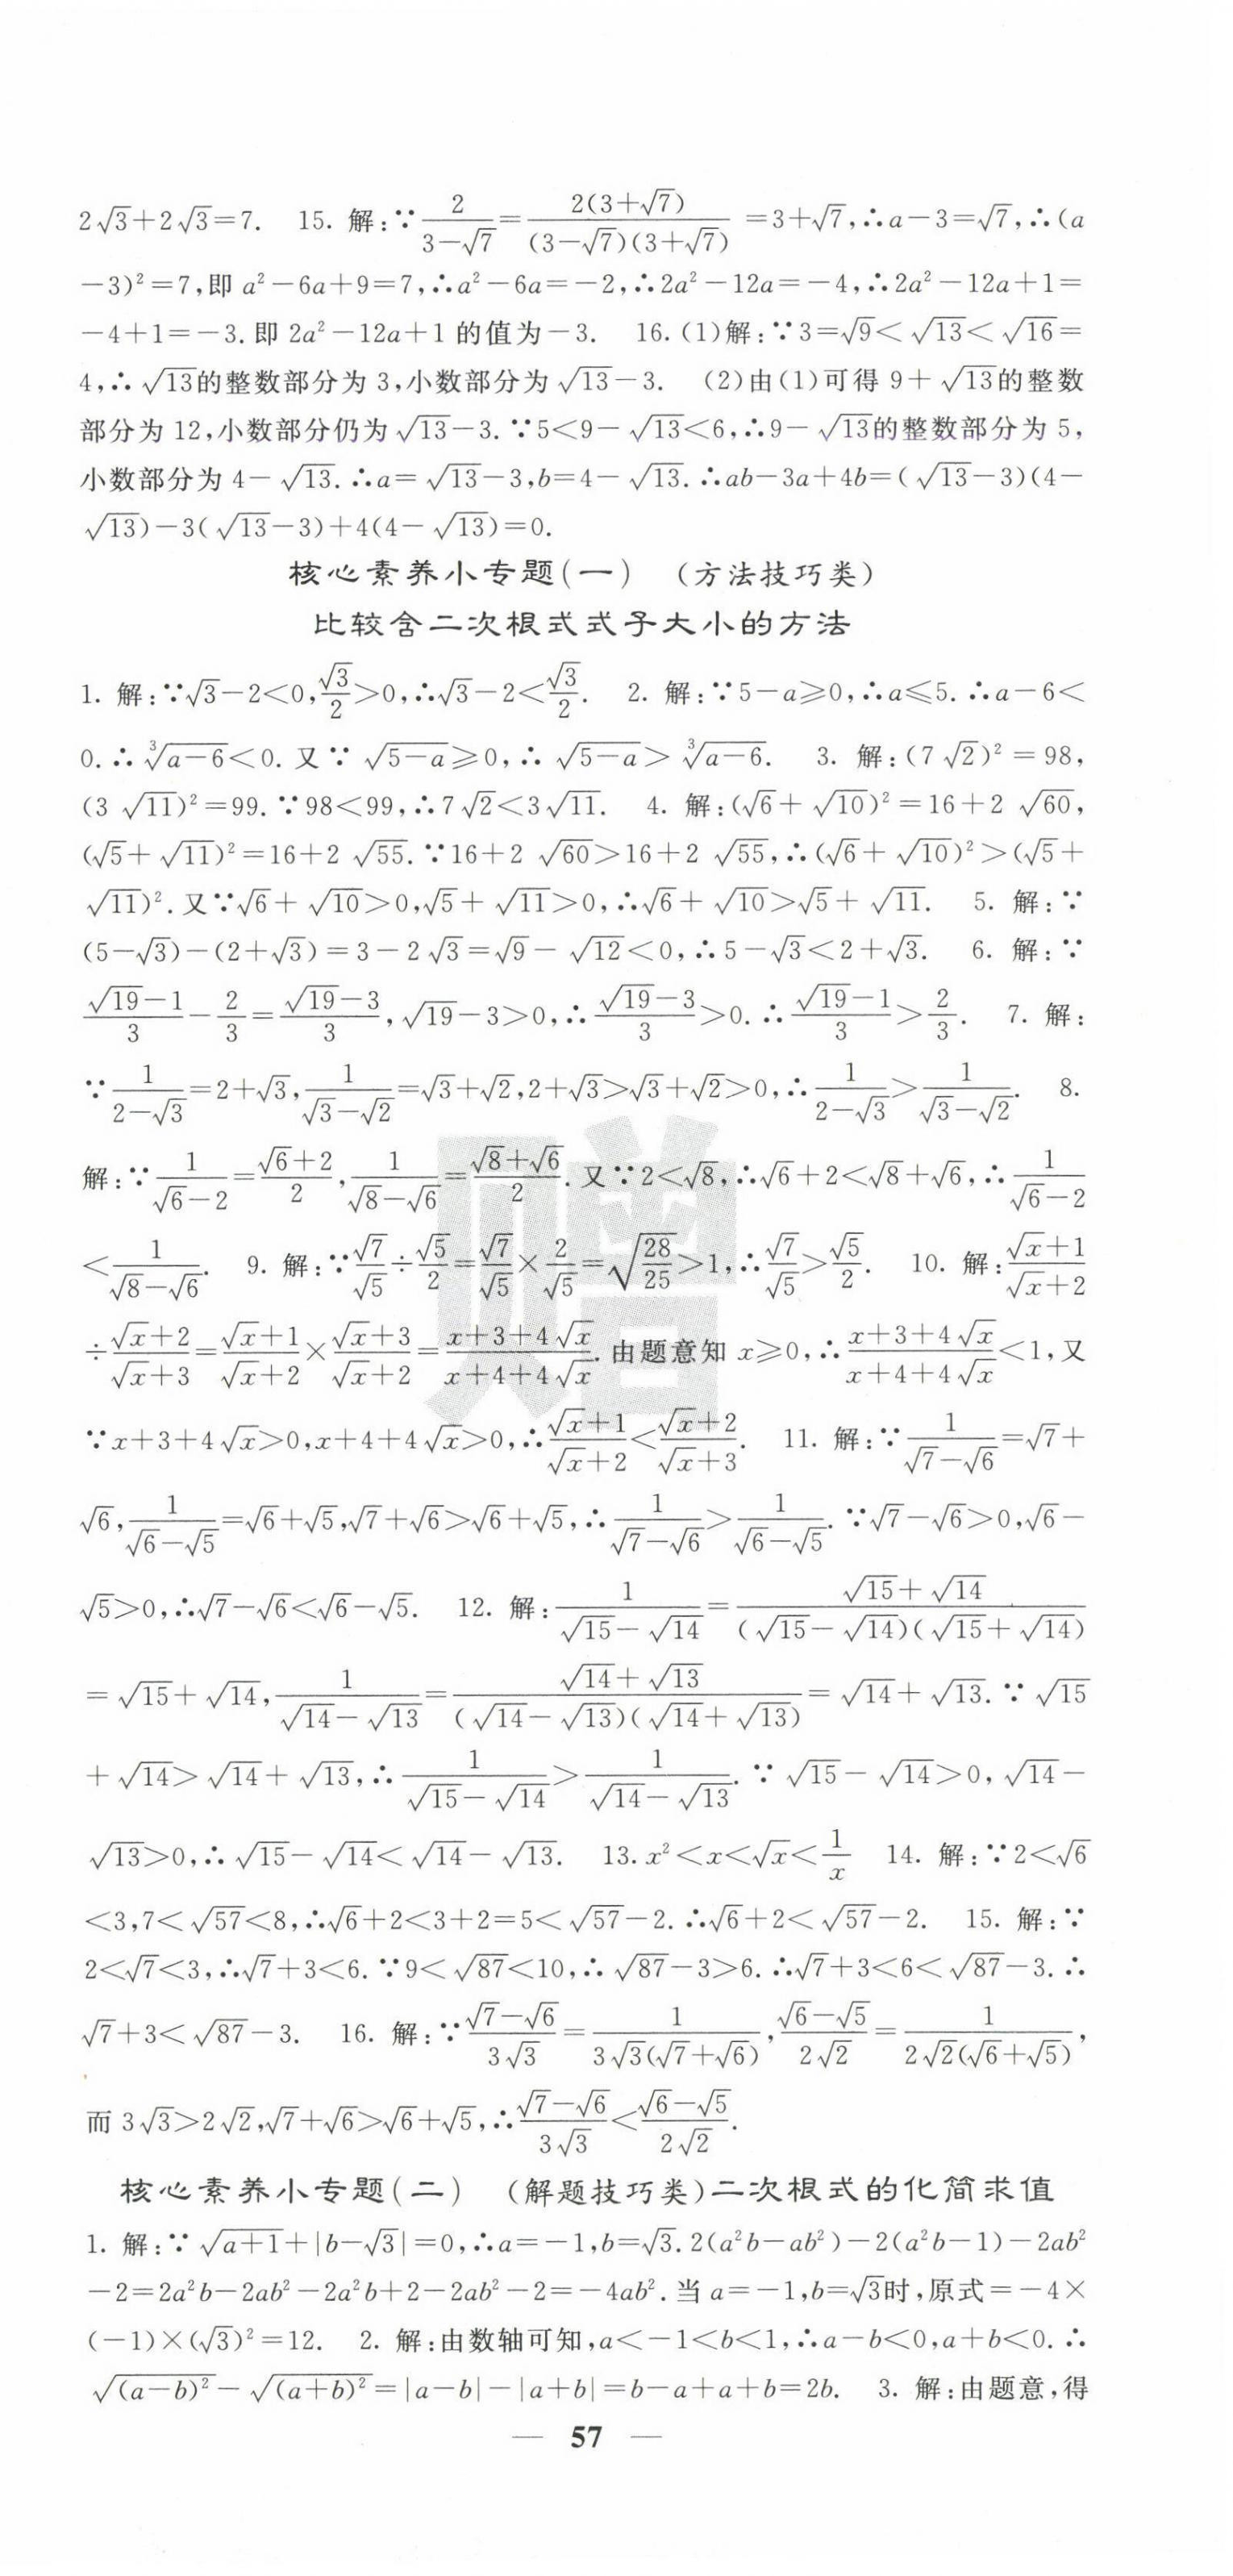 2√3+2√3=7. 15. 解:∵2/(3−√7)=2(3+√7)/((3−√7)(3+√7))=3+√7,∴a−3=√7,∴(a
−3)²=7,即 a²−6a+9=7,∴a²−6a=−2,∴2a²−12a=−4,∴2a²−12a+1=
−4+1=−3. 即 2a²−12a+1 的值为−3. 16. (1)解:∵3=√9<√13<√16=
4,∴√13的整数部分为 3,小数部分为√13−3. (2)由(1)可得 9+√13的整数
部分为 12,小数部分仍为√13−3. ∵5<9−√13<6,∴9−√13的整数部分为 5,
小数部分为 4−√13. ∴a=√13−3,b=4−√13. ∴ab−3a+4b=(√13−3)(4−
√13)−3(√13−3)+4(4−√13)=0.
核心素养小专题(一) (方法技巧类)
比较含二次根式式子大小的方法
1. 解:∵√3−2<0,√3/2>0,∴√3−2<√3/2. 2. 解:∵5−a⩾0,∴a⩽5. ∴a−6<
0. ∴∛(a−6)<0. 又∵√(5−a)⩾0,∴√(5−a)>∛(a−6). 3. 解:(7√2)²=98,
(3√11)²=99. ∵98<99,∴7√2<3√11. 4. 解:(√6+√10)²=16+2√60,
(√5+√11)²=16+2√55. ∵16+2√60>16+2√55,∴(√6+√10)²>(√5+
√11)². 又∵√6+√10>0,√5+√11>0,∴√6+√10>√5+√11. 5. 解:∵
(5−√3)−(2+√3)=3−2√3=√9−√12<0,∴5−√3<2+√3. 6. 解:∵
(√19−1)/3−2/3=(√19−3)/3,√19−3>0,∴(√19−3)/3>0. ∴(√19−1)/3>2/3. 7. 解:
∵1/(2−√3)=2+√3,1/(√3−√2)=√3+√2,2+√3>√3+√2>0,∴1/(2−√3)>1/(√3−√2). 8.
解:∵1/(√6−2)=(√6+2)/2,1/(√8−√6)=(√8+√6)/2. 又∵2<√8,∴√6+2<√8+√6,∴1/(√6−2)
<1/(√8−√6). 9. 解:∵√7/√5÷√5/2=√7/√5×2/√5=√(28/25)>1,∴√7/√5>√5/2. 10. 解:(√x+1)/(√x+2)
÷(√x+2)/(√x+3)=(√x+1)/(√x+2)×(√x+3)/(√x+2)=(x+3+4√x)/(x+4+4√x). 由题意知 x⩾0,∴(x+3+4√x)/(x+4+4√x)<1,又
∵x+3+4√x>0,x+4+4√x>0,∴(√x+1)/(√x+2)<(√x+2)/(√x+3). 11. 解:∵1/(√7−√6)=√7+
√6,1/(√6−√5)=√6+√5,√7+√6>√6+√5,∴1/(√7−√6)>1/(√6−√5). ∵√7−√6>0,√6−
√5>0,∴√7−√6<√6−√5. 12. 解:1/(√15−√14)=(√15+√14)/((√15−√14)(√15+√14))
=√15+√14,1/(√14−√13)=(√14+√13)/((√14−√13)(√14+√13))=√14+√13. ∵√15
+√14>√14+√13,∴1/(√15−√14)>1/(√14−√13). ∵√15−√14>0,√14−
√13>0,∴√15−√14<√14−√13. 13. x²<x<√x<1/x 14. 解:∵2<√6
<3,7<√57<8,∴√6+2<3+2=5<√57−2. ∴√6+2<√57−2. 15. 解:∵
2<√7<3,∴√7+3<6. ∵9<√87<10,∴√87−3>6. ∴√7+3<6<√87−3. ∴
√7+3<√87−3. 16. 解:∵(√7−√6)/(3√3)=1/(3√3(√7+√6)),(√6−√5)/(2√2)=1/(2√2(√6+√5)),
而 3√3>2√2,√7+√6>√6+√5,∴(√7−√6)/(3√3)<(√6−√5)/(2√2).
核心素养小专题(二) (解题技巧类)二次根式的化简求值
1. 解:∵√(a+1)+|b−√3|=0,∴a=−1,b=√3. 2(a²b−ab²)−2(a²b−1)−2ab²
−2=2a²b−2ab²−2a²b+2−2ab²−2=−4ab². 当 a=−1,b=√3时,原式=−4×
(−1)×(√3)²=12. 2. 解:由数轴可知,a<−1<b<1,∴a−b<0,a+b<0. ∴
√((a−b)²)−√((a+b)²)=|a−b|−|a+b|=b−a+a+b=2b. 3. 解:由题意,得
— 57 —
赠